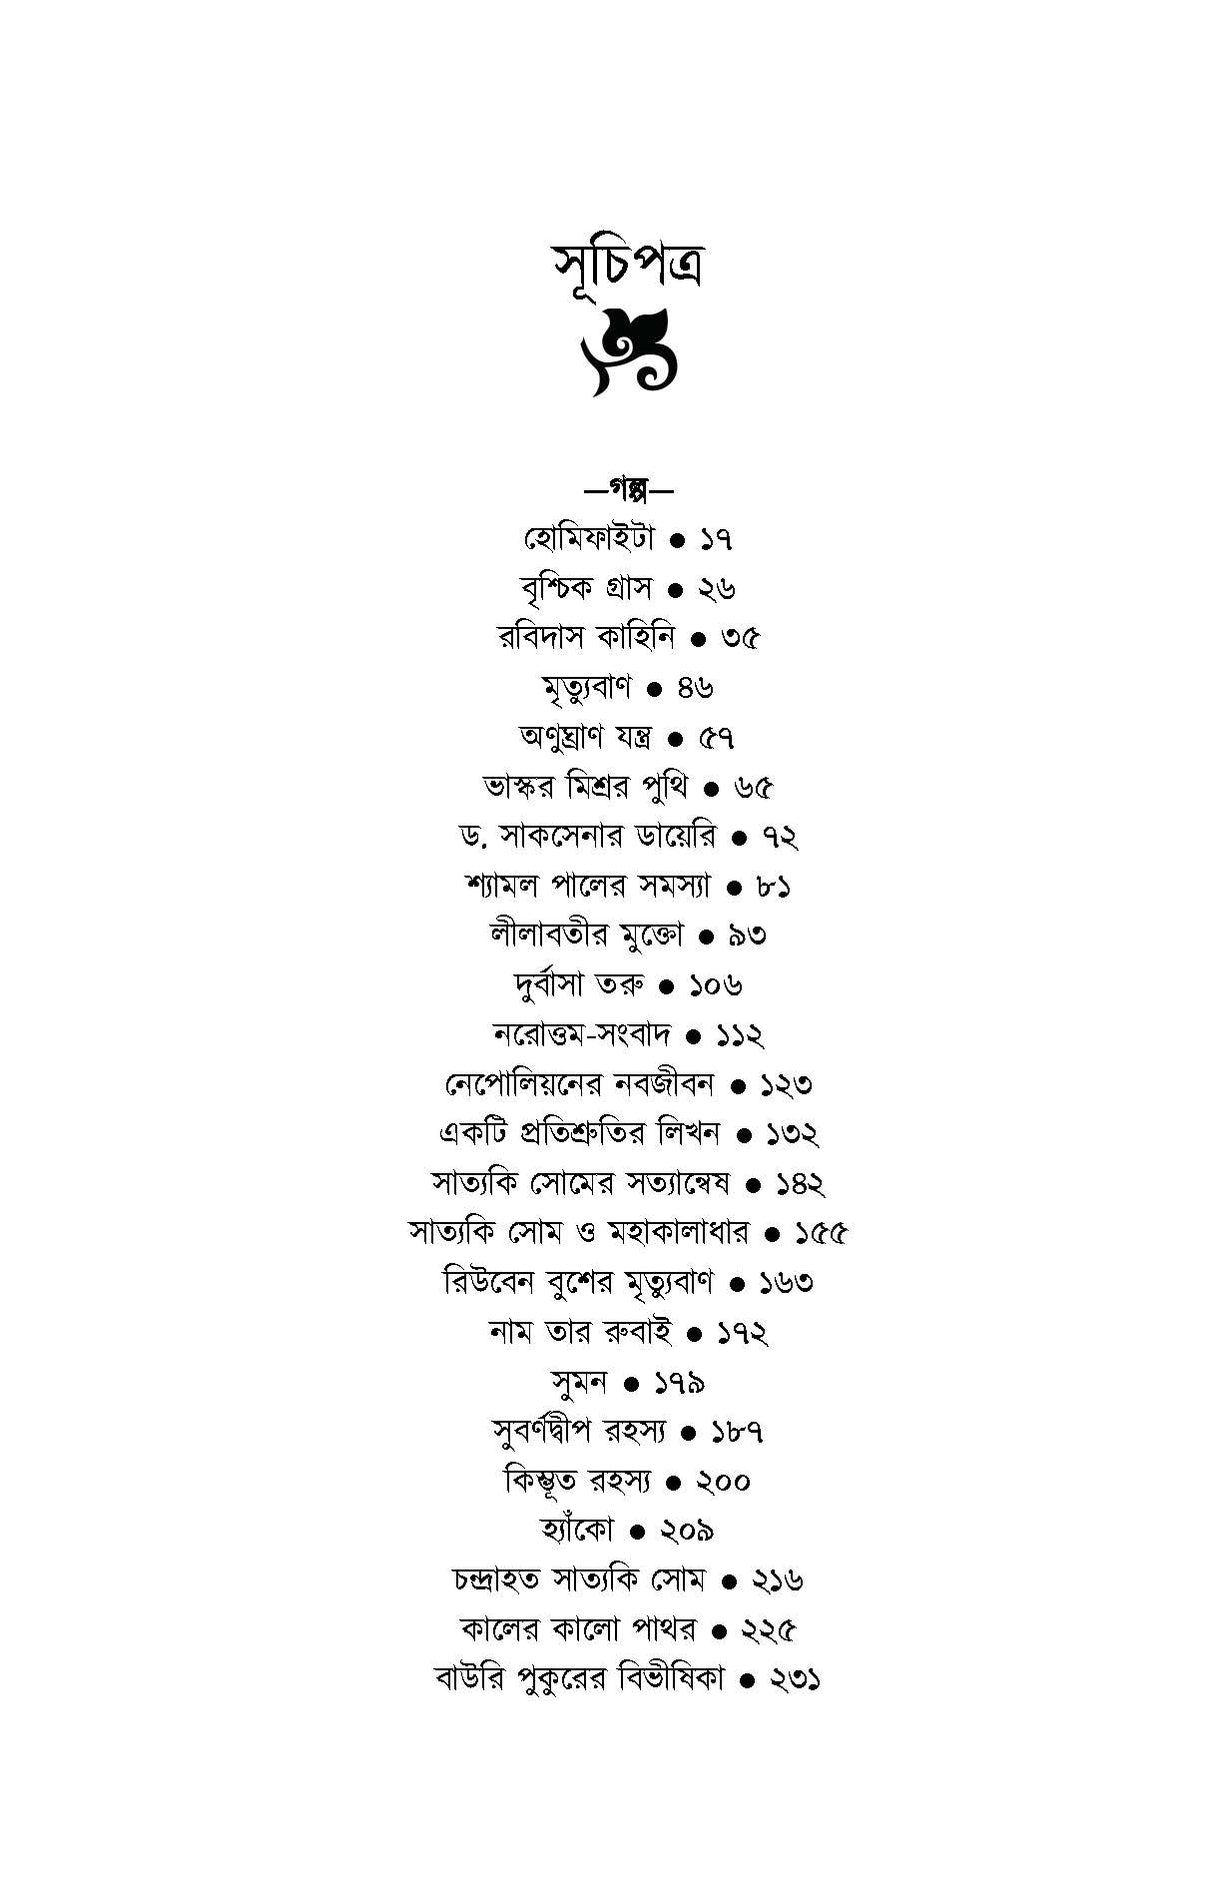 সূচিপত্র
—গল্প—
হোমিফাইটা ● ১৭
বৃশ্চিক গ্রাস ● ২৬
রবিদাস কাহিনি ● ৩৫
মৃত্যুবাণ ● ৪৬
অণুঘ্রাণ যন্ত্র ● ৫৭
ভাস্কর মিশ্রর পুথি ● ৬৫
ড. সাকসেনার ডায়েরি ● ৭২
শ্যামল পালের সমস্যা ● ৮১
লীলাবতীর মুক্তো ● ৯৩
দুর্বাসা তরু ● ১০৬
নরোত্তম-সংবাদ ● ১১২
নেপোলিয়নের নবজীবন ● ১২৩
একটি প্রতিশ্রুতির লিখন ● ১৩২
সাত্যকি সোমের সত্যান্বেষ ● ১৪২
সাত্যকি সোম ও মহাকালাধার ● ১৫৫
রিউবেন বুশের মৃত্যুবাণ ● ১৬৩
নাম তার রুবাই ● ১৭২
সুমন ● ১৭৯
সুবর্ণদ্বীপ রহস্য ● ১৮৭
কিম্ভূত রহস্য ● ২০০
হ্যাঁকো ● ২০৯
চন্দ্রাহত সাত্যকি সোম ● ২১৬
কালের কালো পাথর ● ২২৫
বাউরি পুকুরের বিভীষিকা ● ২৩১